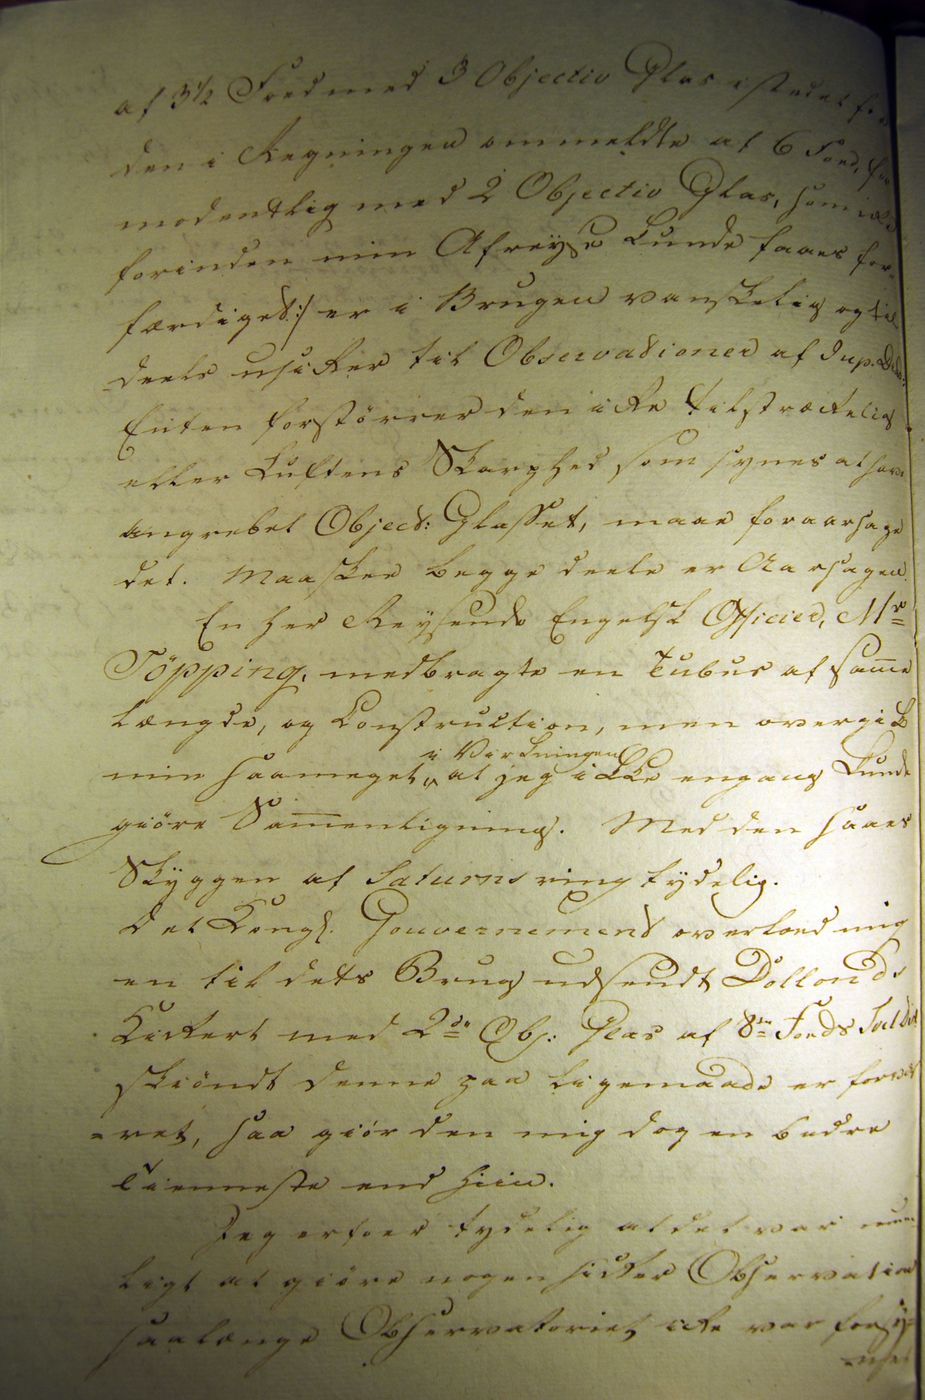 af 3½ Foed med 3 Objectiv Glas istedet for
den i Regningen ommeldte af 6 Foed, for
modentlig med 2 Objectiv Glas, som ikke
forinden min Afreyse kunde faaes for-
færdiget:/ er i Brugen vanskelig og til
deels usikker til Observationer af Jup. Drab:
Enten forstörrer den icke tilstrækkelig
eller Luftens Skarphed som synes at have
angrebet Object: Glasset, maae foraarsage
det. Maaskee begge deele er Aarsagen.
En her Reysende Engelsk Officier, Mr
Töpping, medbragte en Tubus af samme
Længde, og Construction, men overgik
min saameget i Virkningen, at jeg ikke engang kunde
giöre Sammenligning. Med den saaes
Skyggen af Saturns ring tydelig.
Det Kongl. Gouvernement overlod mig
en til dets Brug udsendt Dollonds
Kikkert med 2de Obj: Glas af 8te Foeds
skiöndt denne paa ligemaade er forvit
=ret, saa giör den mig dog en bedre
Tienneste end hiin.
Jeg erfoer tydelig at det var umu-
ligt at giöre nogen sikker Observation
saalænge Observatoriet icke var forsy-
=net